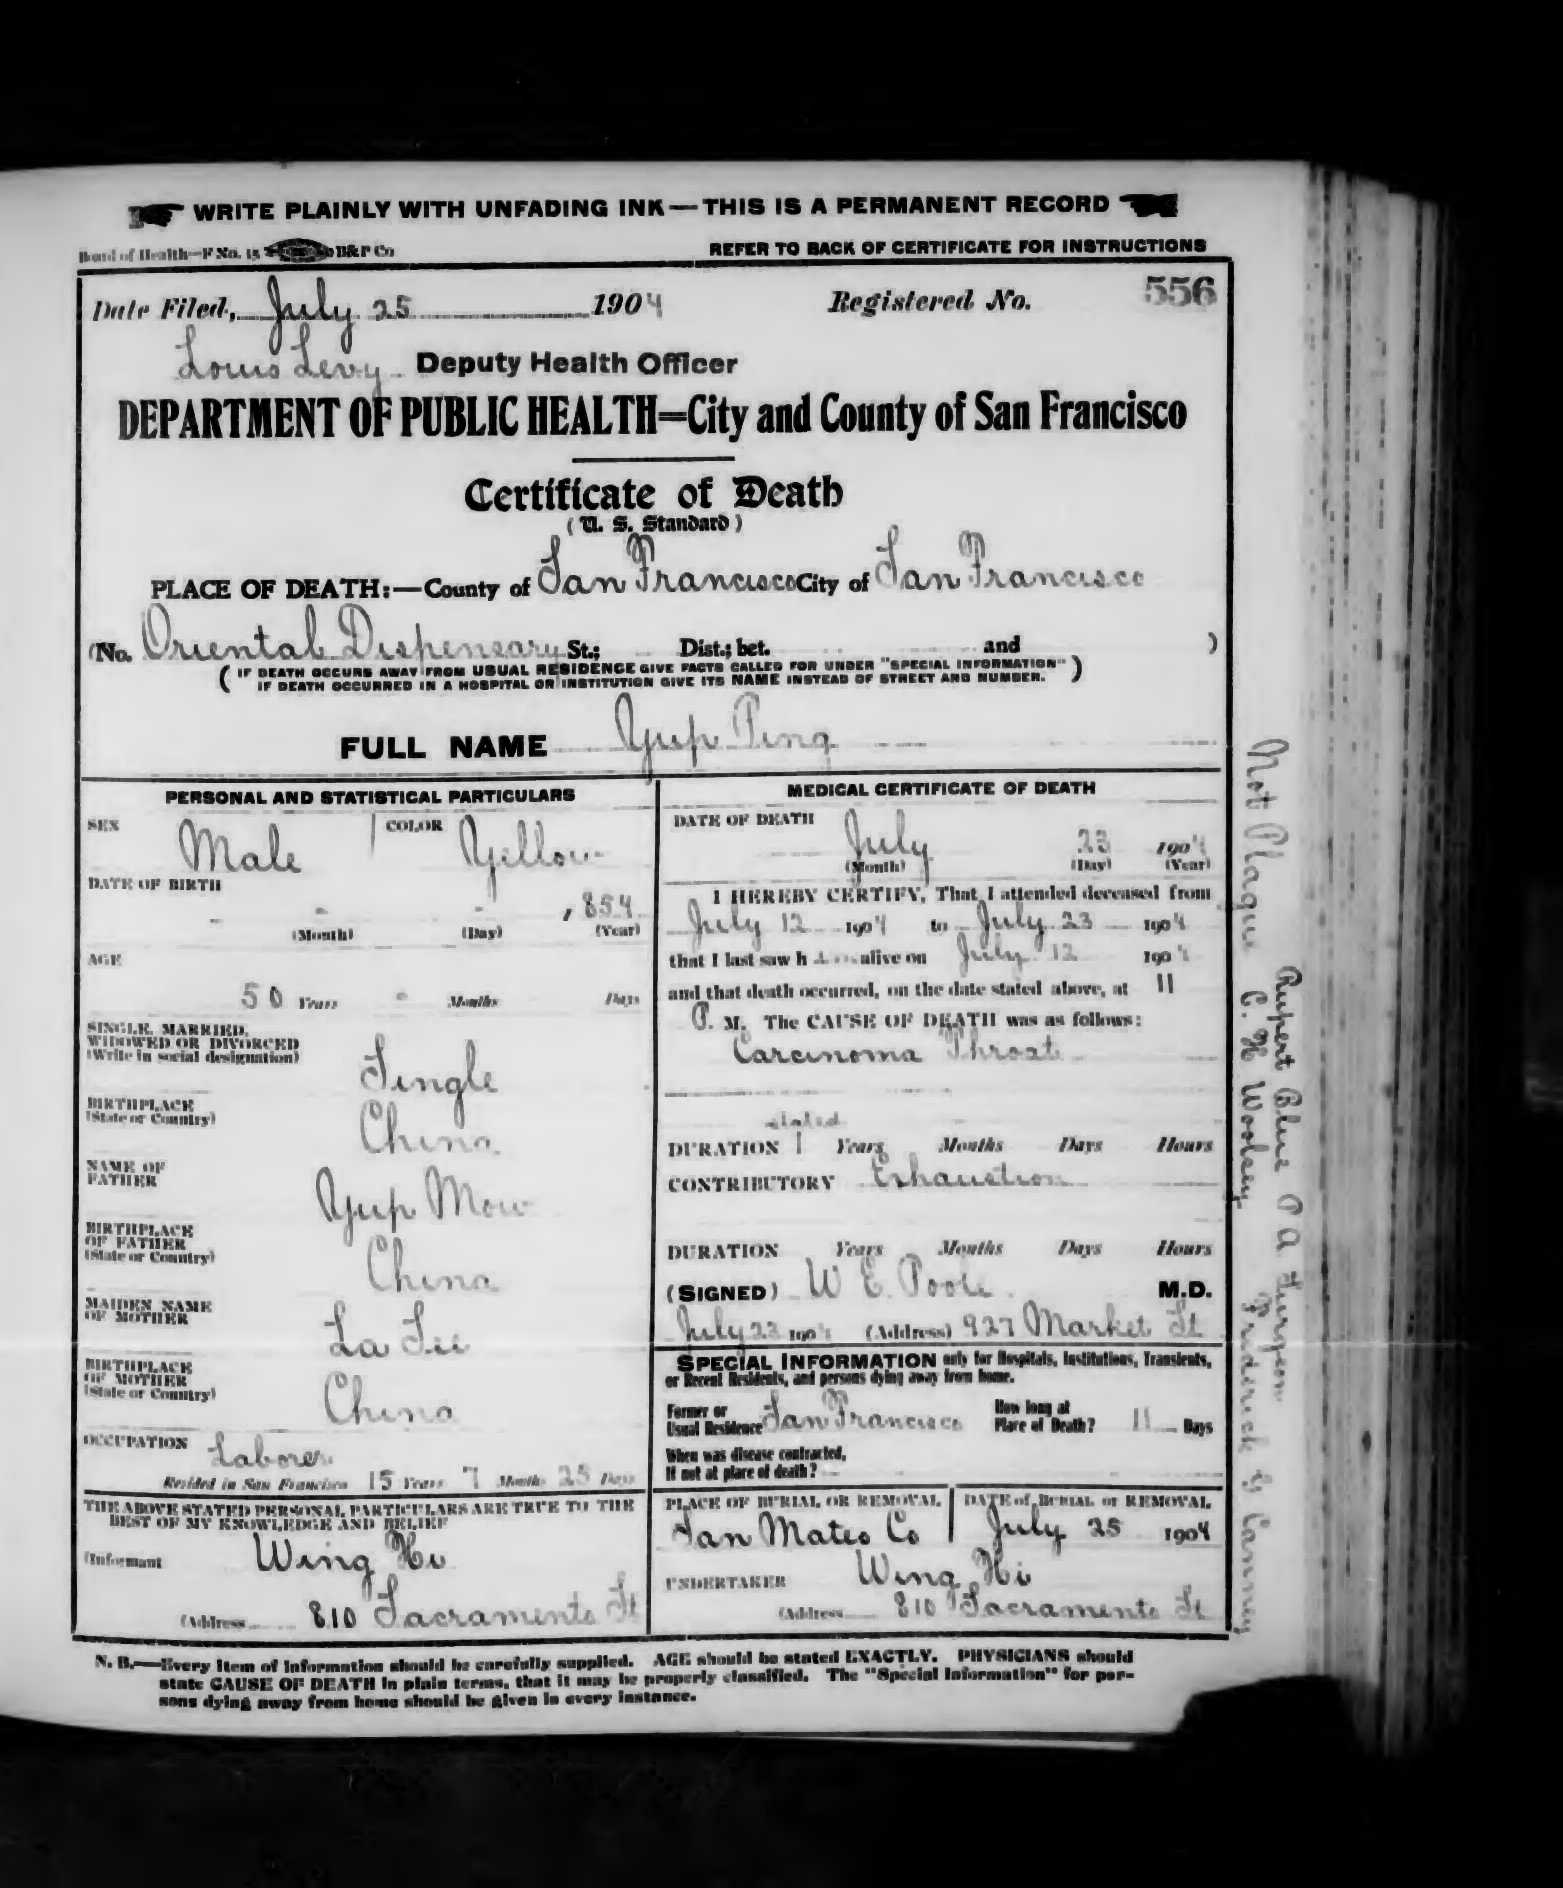 WRITE PLAINLY WITH UNFADING INK—THIS IS A PERMANENT RECORD
Board of Health—F No. 15 B&P Co REFER TO BACK OF CERTIFICATE FOR INSTRUCTIONS
Date Filed, July 25 1904 Registered No. 556
Louis Levy Deputy Health Officer
DEPARTMENT OF PUBLIC HEALTH=City and County of San Francisco
Certificate of Death
(U. S. Standard)
PLACE OF DEATH:—County of San Francisco City of San Francisco
(No. Oriental Dispensary St.; Dist.; bet. and )
( IF DEATH OCCURS AWAY FROM USUAL RESIDENCE GIVE FACTS CALLED FOR UNDER "SPECIAL INFORMATION" )
IF DEATH OCCURRED IN A HOSPITAL OR INSTITUTION GIVE ITS NAME INSTEAD OF STREET AND NUMBER.
FULL NAME Yup Ping
PERSONAL AND STATISTICAL PARTICULARS
SEX Male COLOR Yellow
DATE OF BIRTH
- - , 854
(Month) (Day) (Year)
AGE
50 Years - Months Days
SINGLE, MARRIED,
WIDOWED OR DIVORCED
(Write in social designation) Single
BIRTHPLACE
(State or Country) China
NAME OF
FATHER Yup Mow
BIRTHPLACE
OF FATHER
(State or Country) China
MAIDEN NAME
OF MOTHER La See
BIRTHPLACE
OF MOTHER
(State or Country) China
OCCUPATION Laborer
Resided in San Francisco 15 Years 7 Months 25 Days
THE ABOVE STATED PERSONAL PARTICULARS ARE TRUE TO THE
BEST OF MY KNOWLEDGE AND BELIEF
(Informant Wing Hi
(Address 810 Sacramento St
MEDICAL CERTIFICATE OF DEATH
DATE OF DEATH
July 23 1904
(Month) (Day) (Year)
I HEREBY CERTIFY, That I attended deceased from
July 12 1904 to July 23 1904
that I last saw h alive on July 12 1904
and that death occurred, on the date stated above, at 11
P. M. The CAUSE OF DEATH was as follows:
Carcinoma Throat
stated
DURATION 1 Years Months Days Hours
CONTRIBUTORY Exhaustion
DURATION Years Months Days Hours
(SIGNED) W E Poole M.D.
July 23 1904 (Address) 927 Market St
SPECIAL INFORMATION only for Hospitals, Institutions, Transients,
or Recent Residents, and persons dying away from home.
Former or
Usual Residence San Francisco How long at
Place of Death? 11 Days
When was disease contracted,
If not at place of death?
PLACE OF BURIAL OR REMOVAL DATE of BURIAL or REMOVAL
San Mateo Co July 25 1904
UNDERTAKER Wing Hi
(Address 810 Sacramento St
N. B.—Every item of information should be carefully supplied. AGE should be stated EXACTLY. PHYSICIANS should
state CAUSE OF DEATH in plain terms, that it may be properly classified. The "Special Information" for per-
sons dying away from home should be given in every instance.
Not Plague
Rupert Blue P A Surgeon
C. H Woolsey
Frederick G Canney